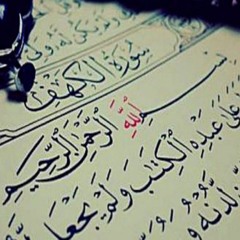 سورة الكهف
بِسْمِ اللَّهِ الرَّحْمَنِ الرَّحِيمِ
عَلَى عَبْدِهِ الْكِتَبَ وَلَمْ يَجْعَل
لَّدُنْهُ وَ